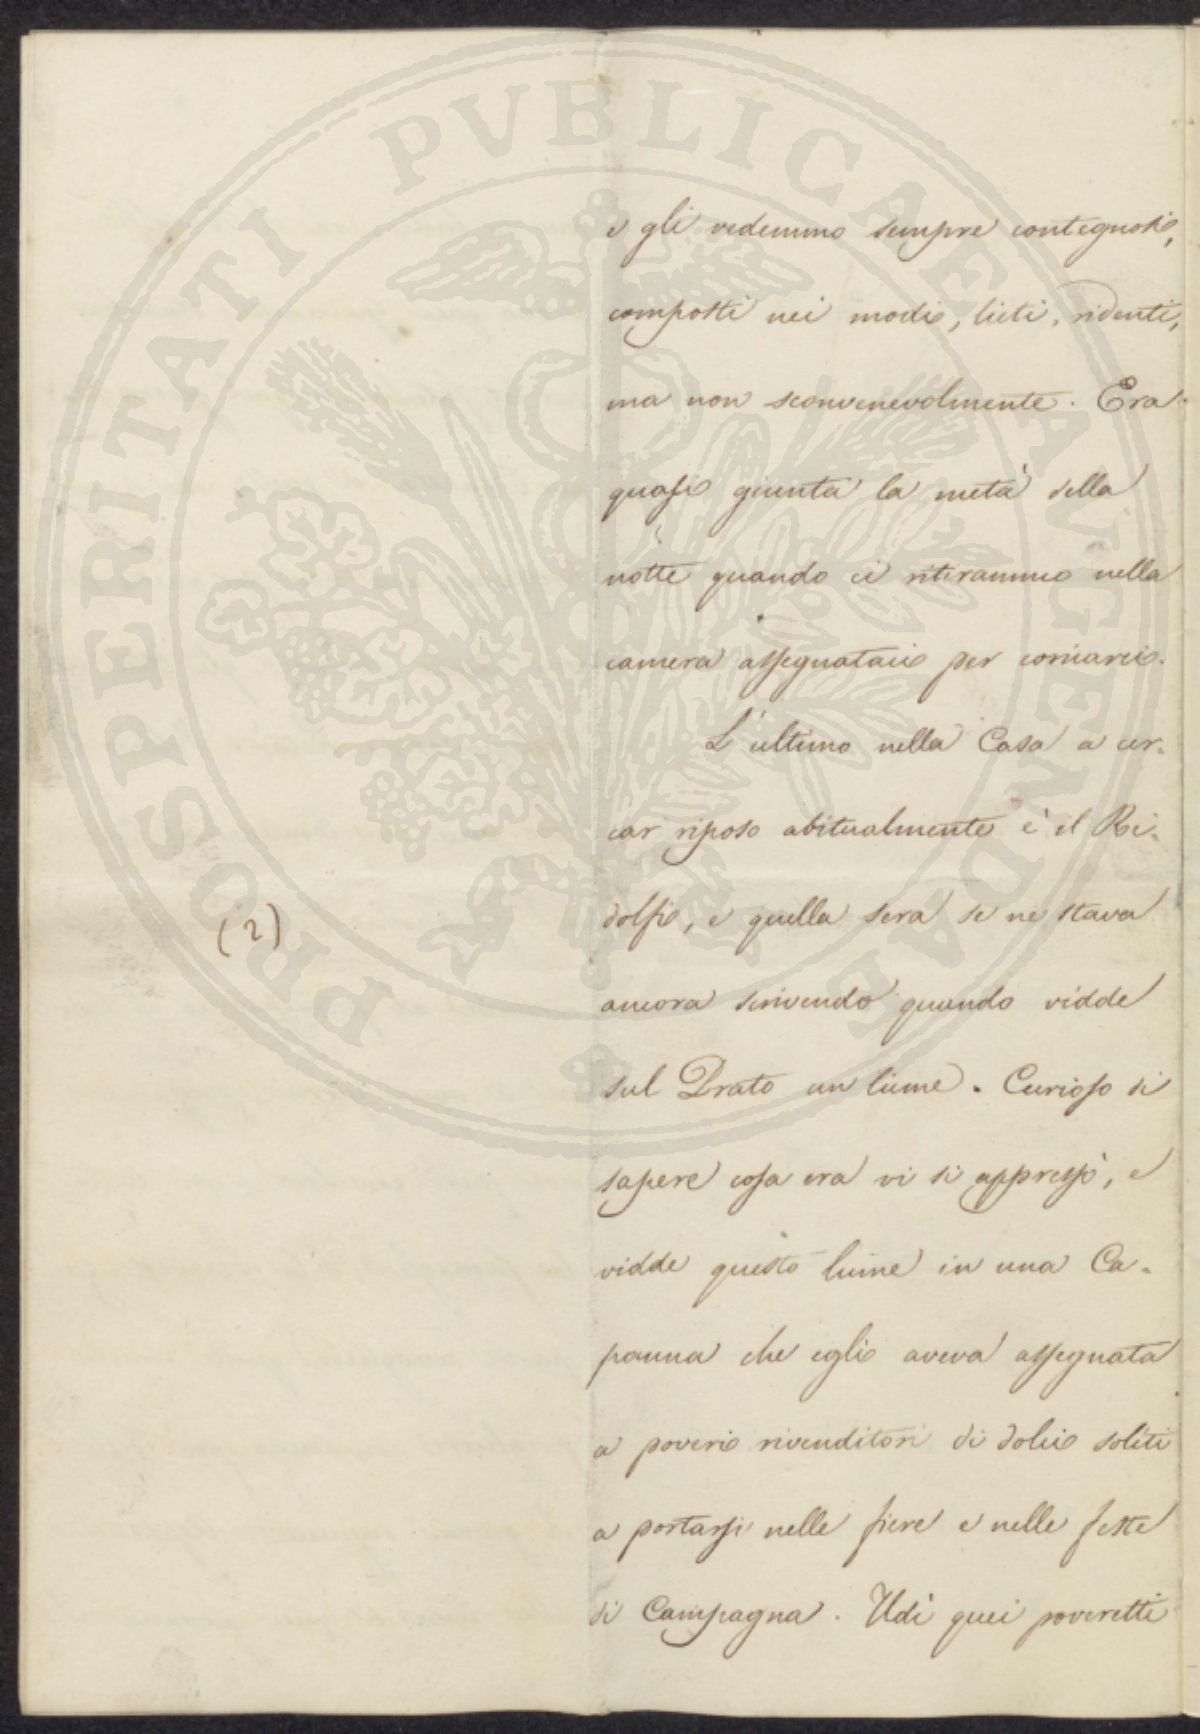 PROSPERITATI PVBLICAE AVGENDAE
e gli vedemmo sempre contegnosi,
composti nei modi, lieti, ridenti,
ma non sconvenevolmente. Era
quasi giunta la metà della
notte quando ci ritirammo nella
camera assegnataci per coricarci.
L'ultimo nella Casa a cer-
car riposo abitualmente è il Ri-
dolfi, e quella sera se ne stava
(2)
ancora scrivendo quando vidde
sul Prato un lume. Curioso di
sapere cosa era vi si appressò, e
vidde questo lume in una Ca-
panna che egli aveva assegnata
a poveri rivenditori di dolci soliti
a portarsi nelle fiere e nelle feste
di Campagna. Udì quei poveretti